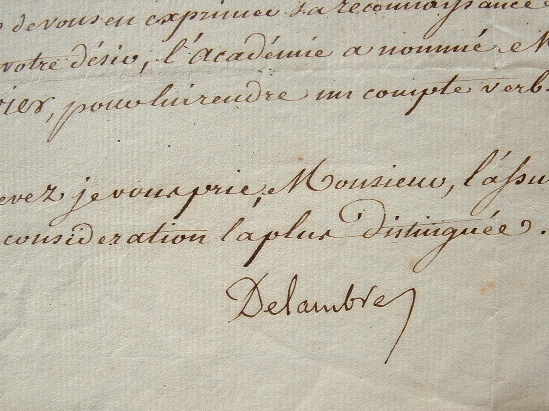 de vous en exprimer sa reconnoissance
votre désir, l'académie a nommé M
vier, pour lui rendre un compte verb
evez je vous prie, Monsieur, l'assu
consideration la plus distinguée.
Delambre